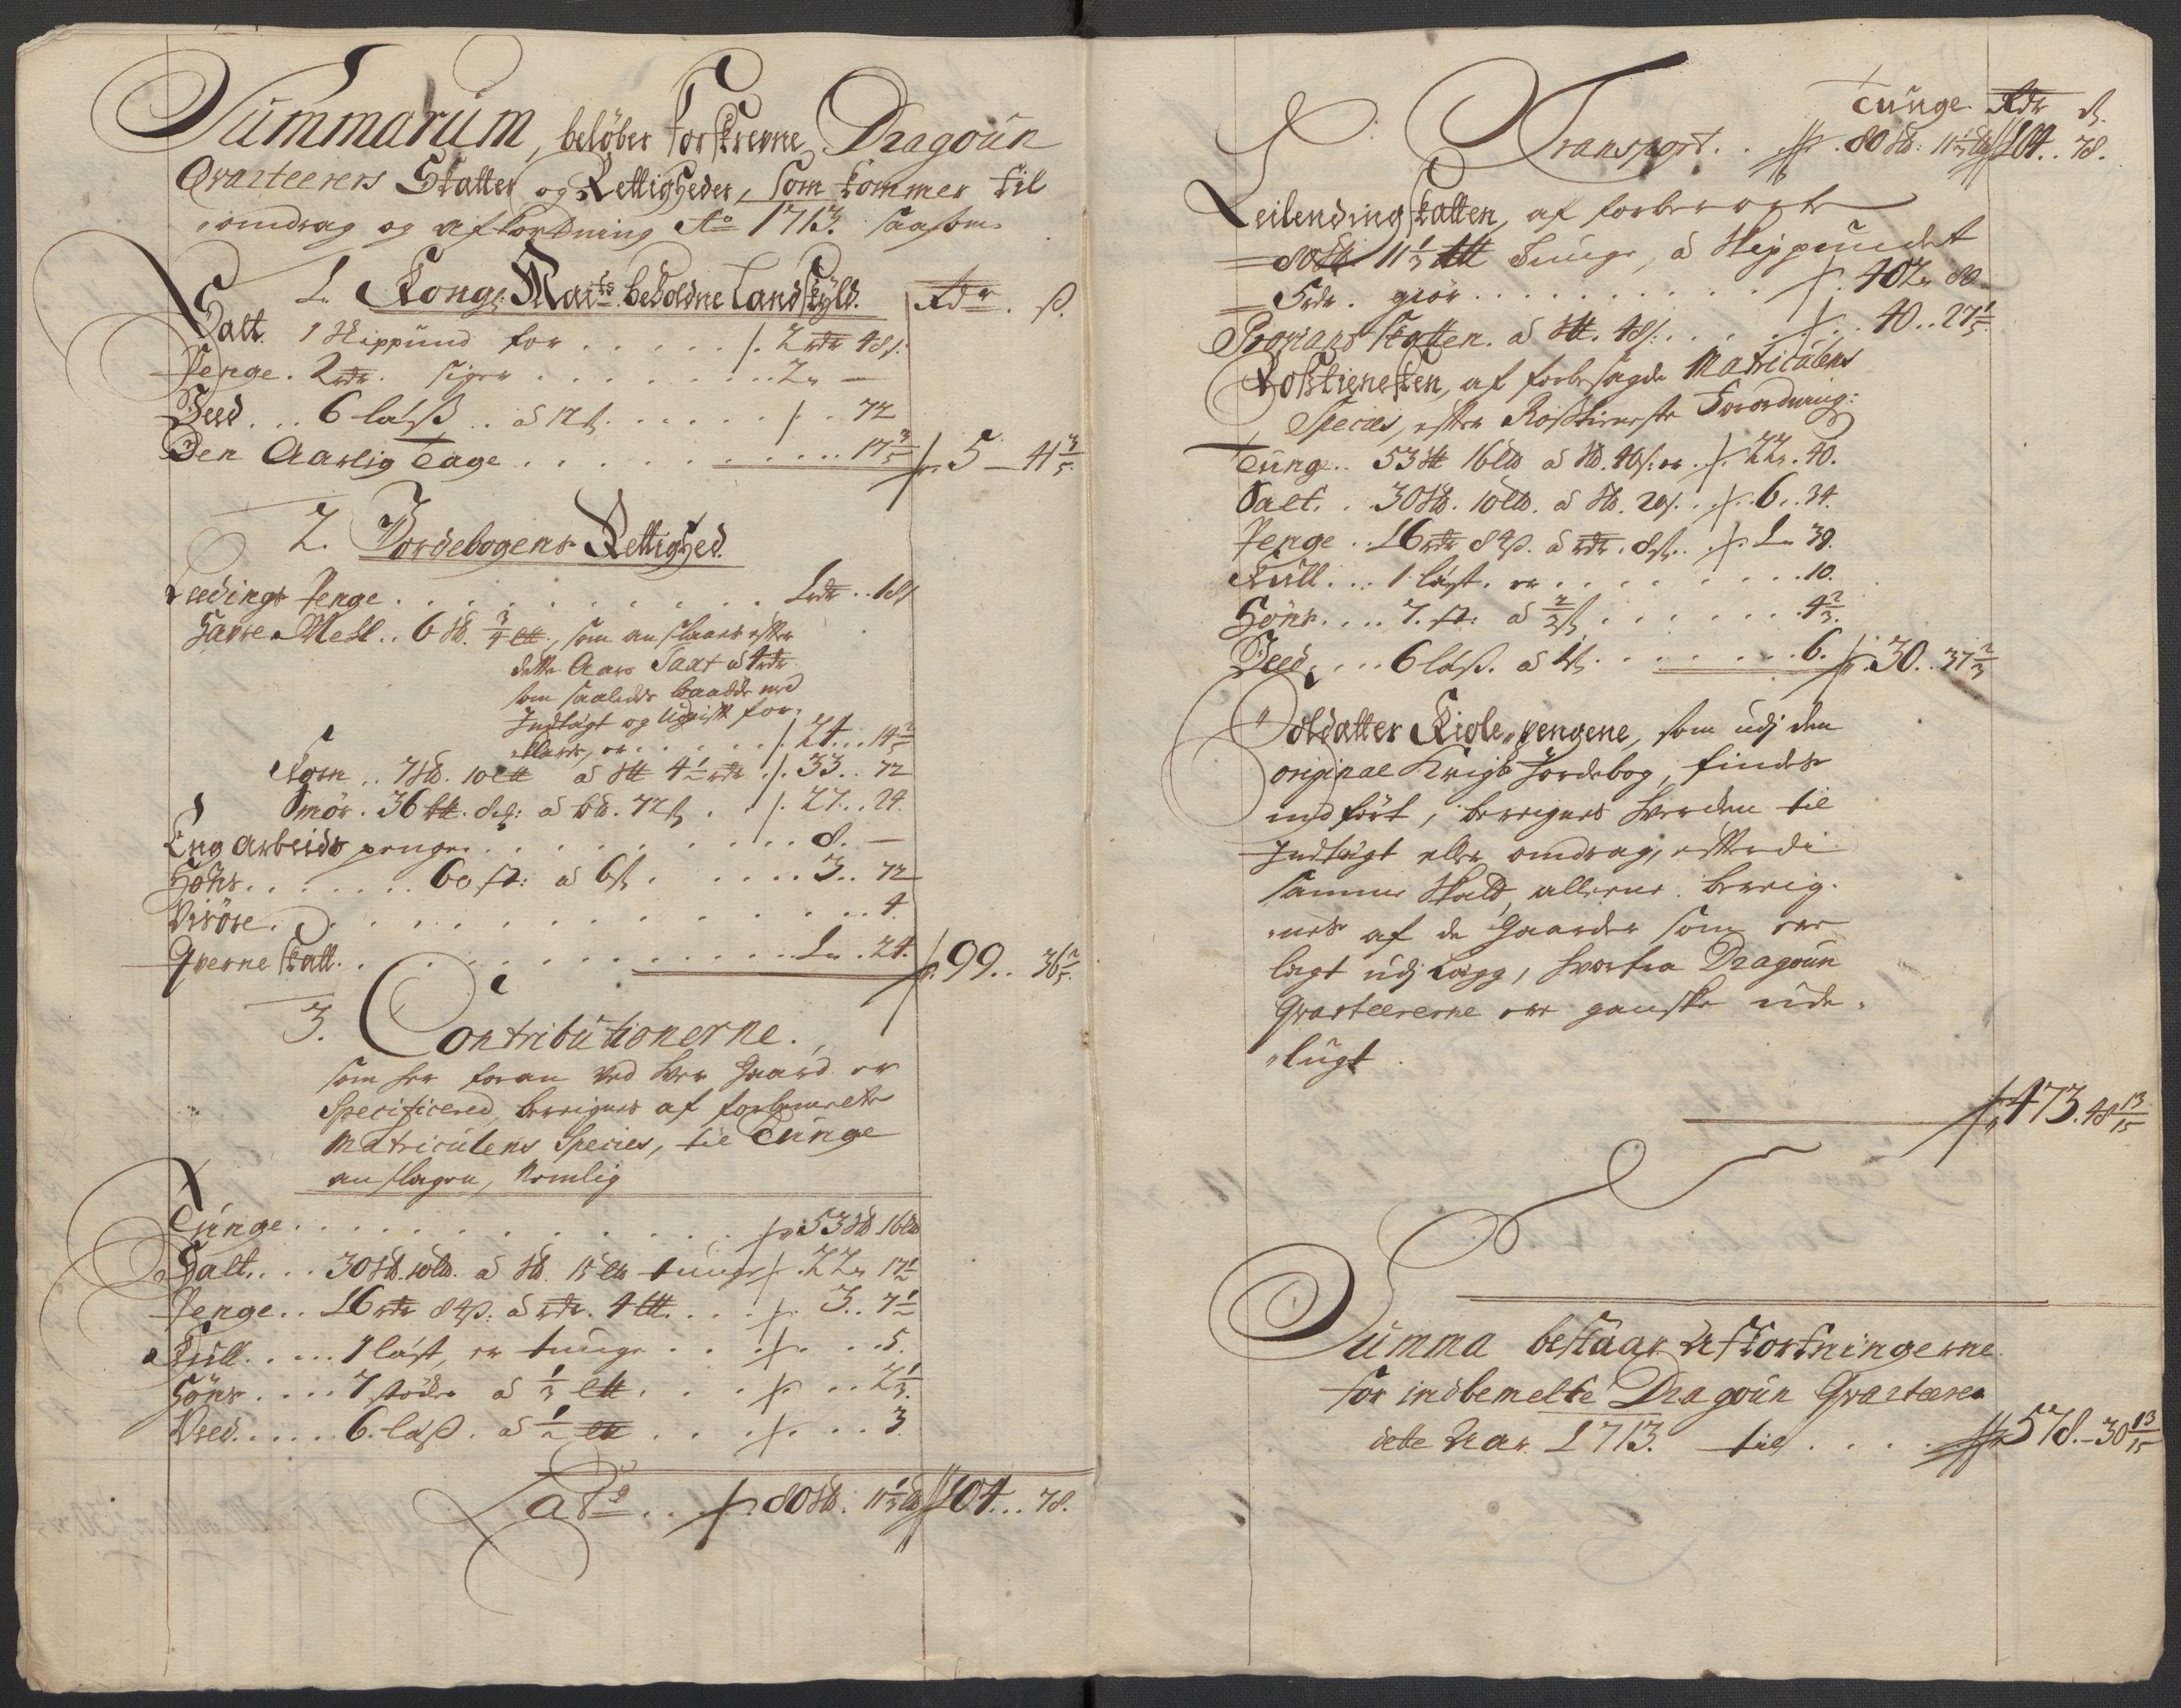 Summarum, beløber forskrevne Dragoun
Qvarteerers Skatter og Rettigheder, som kommer til
omdrag og aftordning Ao 1713. saasom
1. Kongl: Maits. beholdne Landskyld. Rdr. ß.
Salt. 1 Skippund for . . . . . 2 rdr 48 ß.
Penge. 2 rdr. siger . . . . . . . 2 „ —
Veed . . . 6 läss . . à 12 ß . . . . . . 72
Den Aarlig Tage . . . . . . . . . . 17 3/5 5 — 41 3/5
2. Jordebogens Rettighed.
Leedings Penge . . . . . . . . . . 1 rdr . . 18 ß
Havre Mell . . 6 Sk. 3/4 , som anslaaes efter
dette Aars Taxt à 4 rdr
som saaledes baade ved
Indtægt og Udgift for-
klares, er . . . . . . 24 . . . 14 2/5
Korn . . 7 Sk. 10 à 4 1/2 rdr . 33 . . 72
Smør. 36 . à . 72 ß . . 27 . . 24.
Eng arbeids penge . . . . . . . . . . 8. —
Høns . . . . . . . 60 st: à 6 ß . . . . . 3 . . 72
Visøre. . . . . . . . . . . . . . . 4.
Qverne skatt. . . . . . . . . . . . . 1 „ . 24. 99 . . 36 2/5
3. Contributionerne.
som her foran ved hver Gaard er
Specificered, bereignes af forbemelte
Matriculens Species, til Tunge
anslagen, Nemlig
Tunge . . . . . . . . . . . . 53 16
Salt . . . . 30 10 à 15 tunge 22 „ 17 1/2
Penge . . 16 rdr 84 ß: à rdr. 4 . . . 3 . . 7 1/2
Kull . . . . . 1 läst, er tunge . . . . . 5.
Høns . . . . 7 støcker à 1/3 . . . . . . 2 1/3.
Veed . . . . . 6. läss. à 1/2 . . . . . . 3
Lats . . . 80 . 11 1/3 104 . . . 78.
Tunge. Rdr ß.
Transport . . . 80 . 11 1/3 104 . . 78.
Leilending skatten, af forberørte
80 11 1/3 Tunge, à Skippundet
5 rdr. giør . . . . . . . . . 402 „ 80
Proviant Skatten. à . 48 ß . . . . . 40 . . 27 1/5
Rosstienesten, af forbesagde Matriculens
Species, efter Rosstieneste Forordning:
Tunge . . 53 16 à . 40 ß. er . 22 „ . 40.
Salt. . 30 . 10 . à . 20 ß. . . 6 . . 34.
Penge . . 16 rdr 84 ß. à rdr. 8 ß . . 1 „ 39.
Kull . . . 1 läst. er . . . . . . . . . 10.
Høns . . . . 7. st: à 2/3 ß . . . . . . 4 2/3.
Veed . . . 6 läss. à 1 ß . . . . . . . 6. 30 . . 37 2/3
Soldatter Kiole pengene, som udj den
original Krigs Jordebog, findes
indført, bereignes hverken til
Indtægt eller omdrag, efterdi
samme Skatt, allene bereig-
nes af de Gaarder som er
lagt udj Lægg, hvorfra Dragoun
Qvarteererne ere ganske ude-
lugt.
473. 48 13/15
Summa bestaar Aftortningerne
for indbemelte Dragoun Qvarteerer
dette Aar 1713. til . . . . 578. — 30 13/15